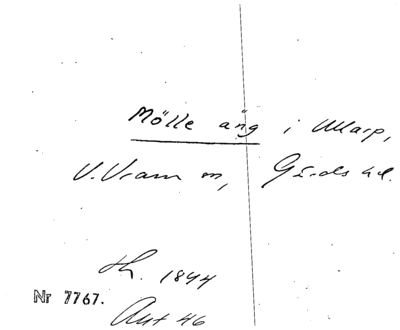 Mölle äng i Ullarp,
V. Vram sn, Gärds hd.
1844
Nr 7767.
Akt 46